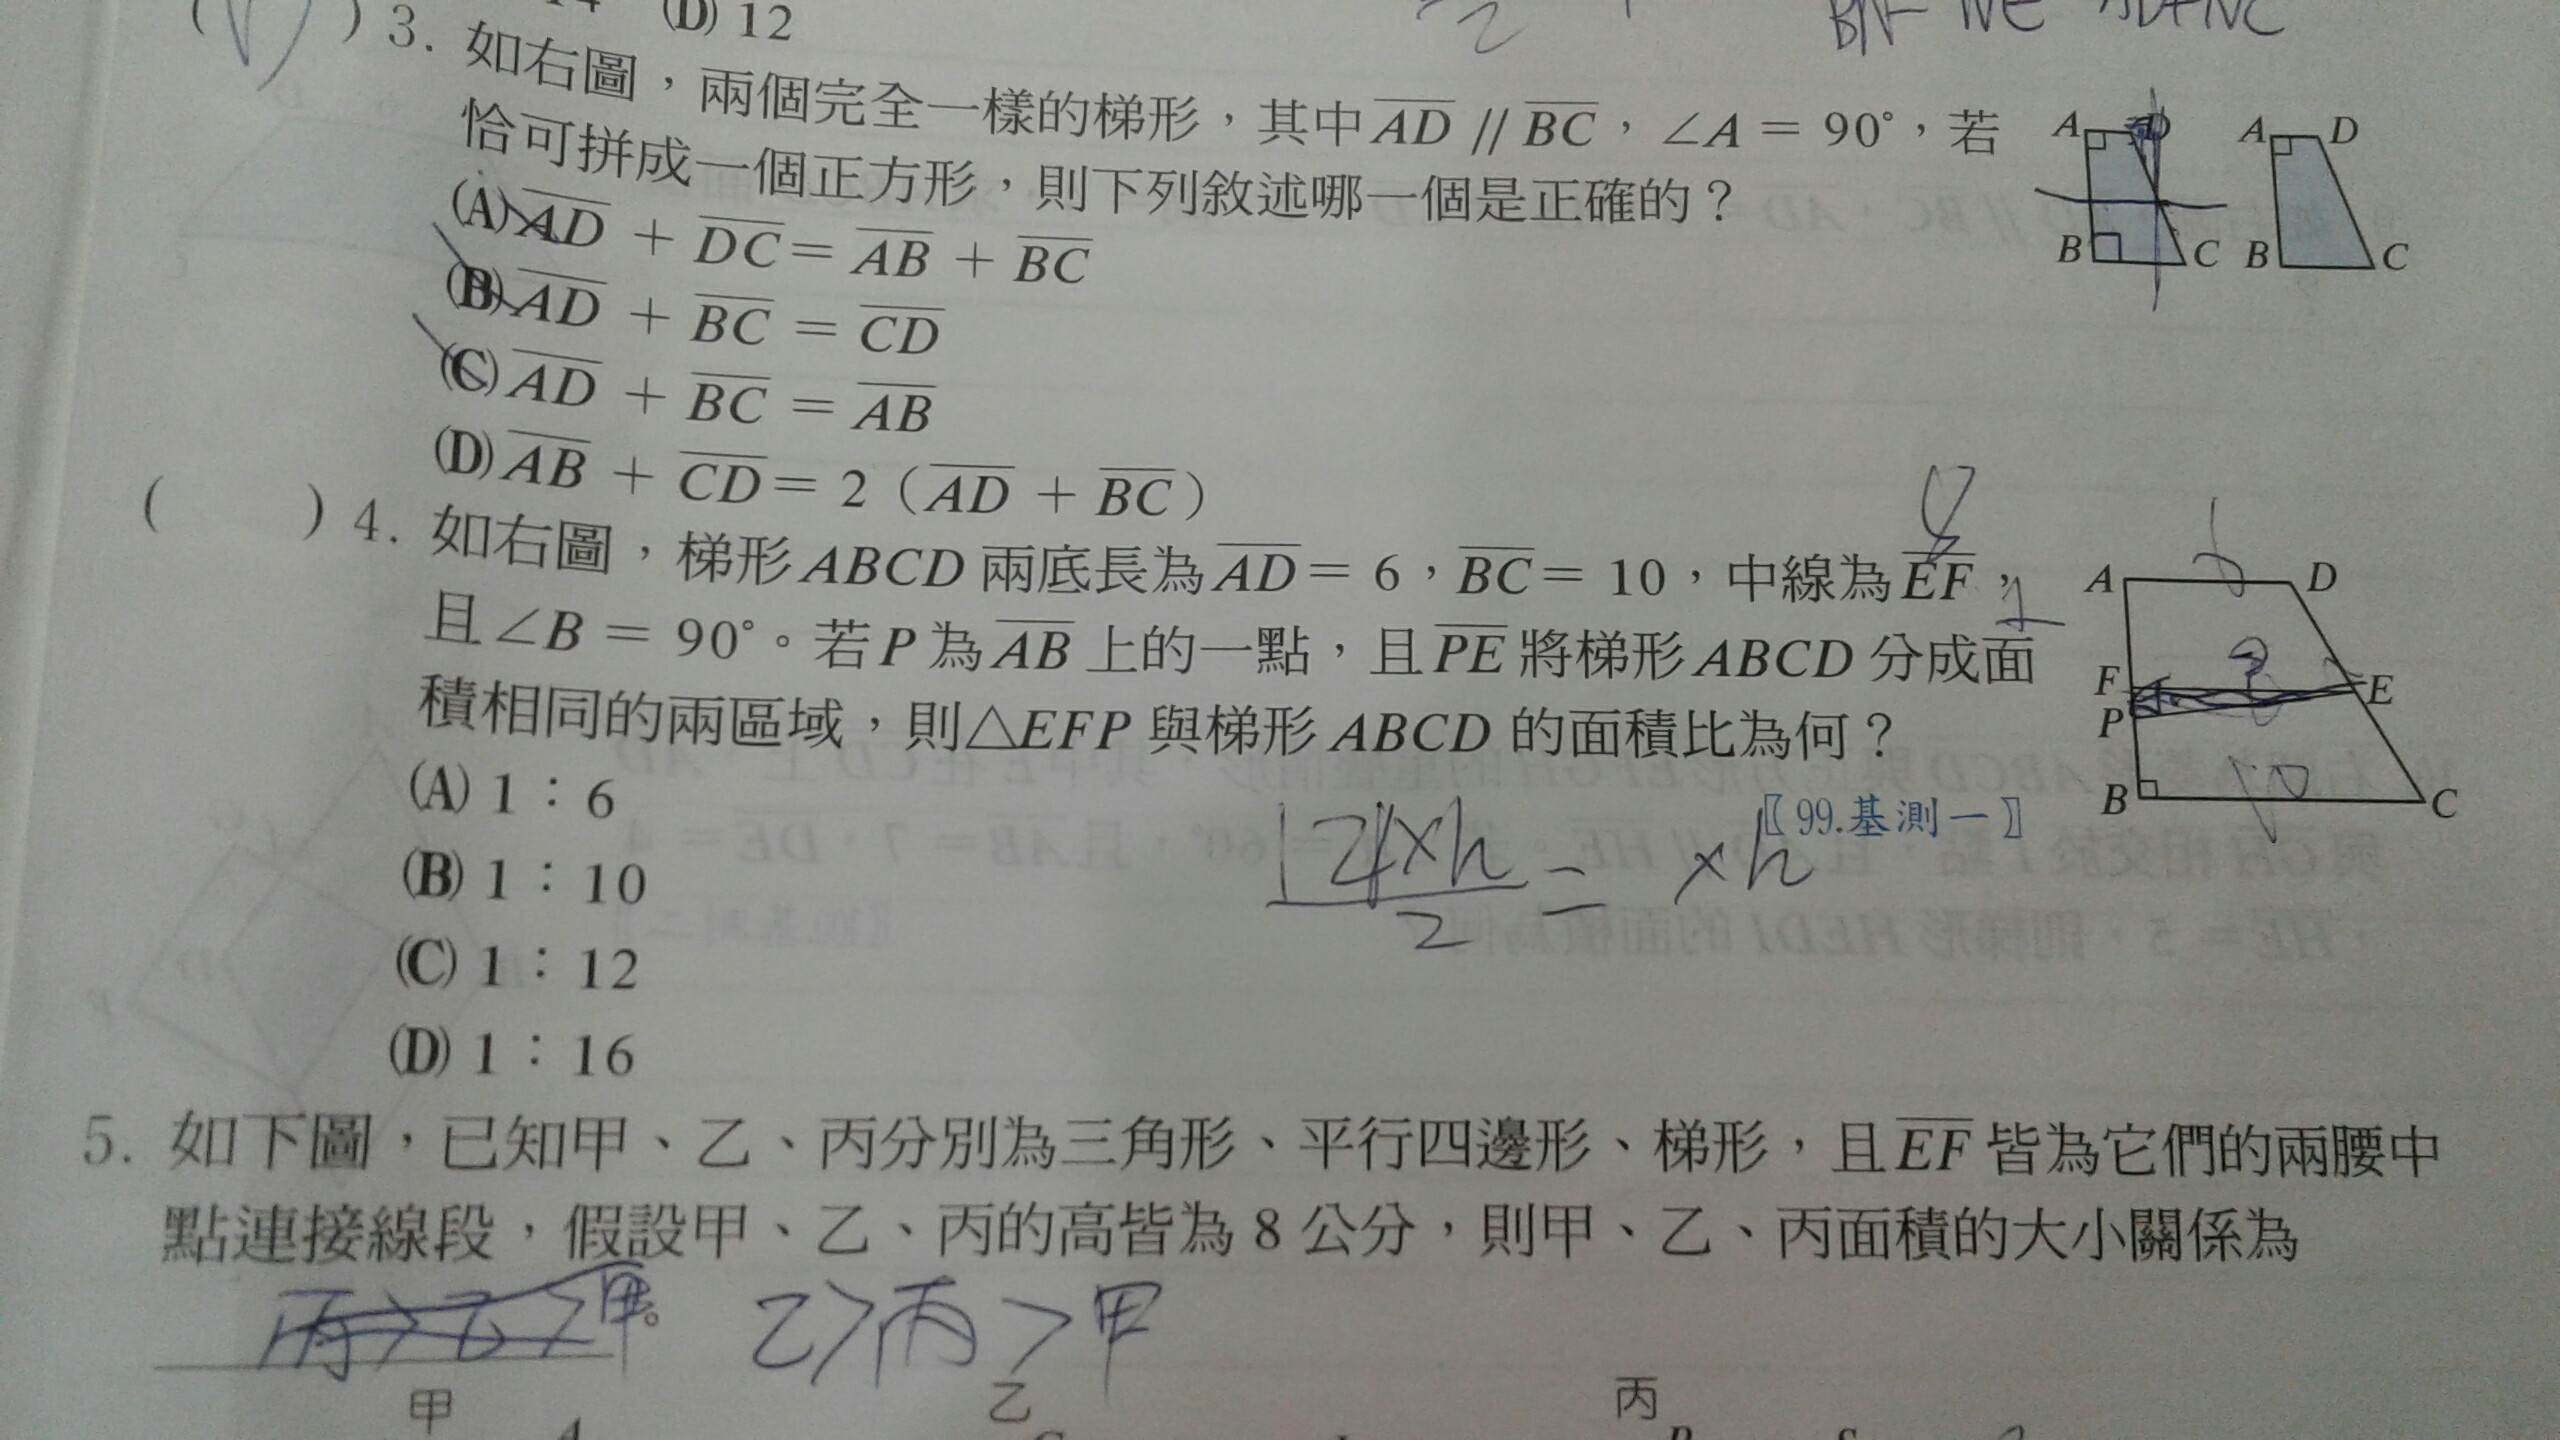 (D) 12
3. 如右圖，兩個完全一樣的梯形，其中AD // BC，∠A = 90°，若
恰可拼成一個正方形，則下列敘述哪一個是正確的？
(A) AD + DC = AB + BC
(B) AD + BC = CD
(C) AD + BC = AB
(D) AB + CD = 2（AD + BC）
A D B C
A D B C
( ) 4. 如右圖，梯形ABCD 兩底長為AD = 6，BC = 10，中線為EF，
且∠B = 90°。若P 為AB 上的一點，且PE 將梯形ABCD 分成面
積相同的兩區域，則△EFP 與梯形ABCD 的面積比為何？
〖99.基測一〗
(A) 1：6
(B) 1：10
(C) 1：12
(D) 1：16
A D
F E
P
B C
5. 如下圖，已知甲、乙、丙分別為三角形、平行四邊形、梯形，且EF 皆為它們的兩腰中
點連接線段，假設甲、乙、丙的高皆為 8 公分，則甲、乙、丙面積的大小關係為
丙>乙>甲。 乙>丙>甲
甲 乙 丙